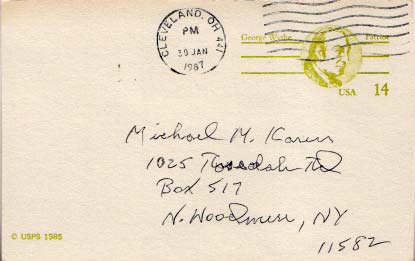 CLEVELAND, OH 441
PM
30 JAN
1987
George Wythe Patriot
USA 14
Michael M.
1025 Rd
Box 517
N. Woodmere, NY
11582
© USPS 1985